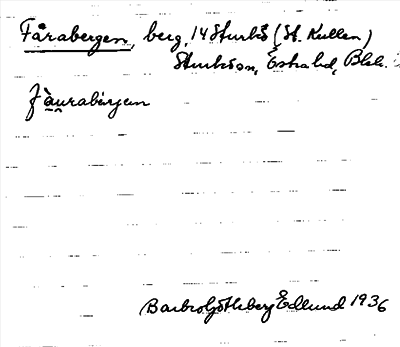 Fårabergen, berg, 14 Sturkö (St. Kullen)
Sturkö sn, Ö stra hd, Blek.
fàu̯rabærjen
Barbro Götheberg Edlund 1936